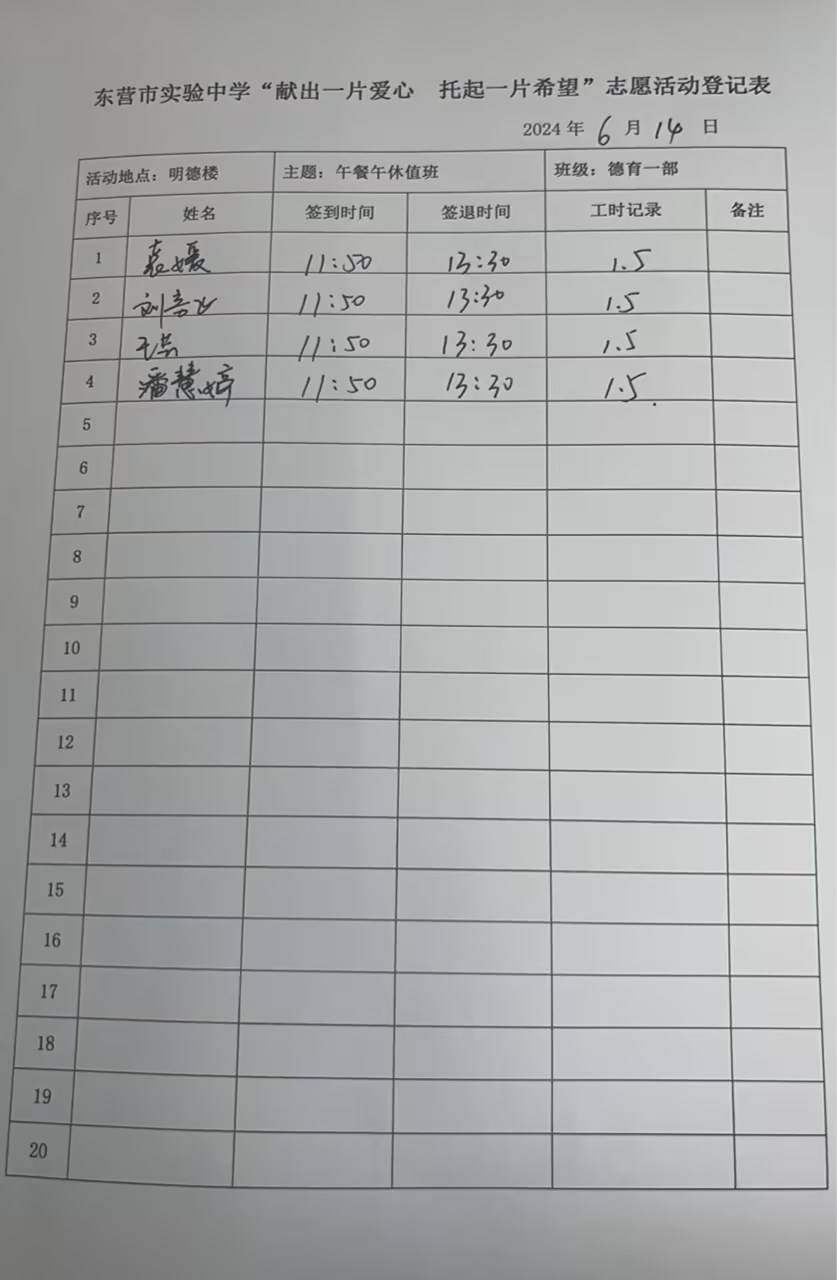 东营市实验中学“献出一片爱心 托起一片希望”志愿活动登记表
2024 年 6 月 14 日
活动地点：明德楼 主题：午餐午休值班 班级：德育一部
序号 姓名 签到时间 签退时间 工时记录 备注
1 袁媛 11:50 13:30 1.5
2 11:50 13:30 1.5
3 11:50 13:30 1.5
4 潘慧婷 11:50 13:30 1.5
5
6
7
8
9
10
11
12
13
14
15
16
17
18
19
20